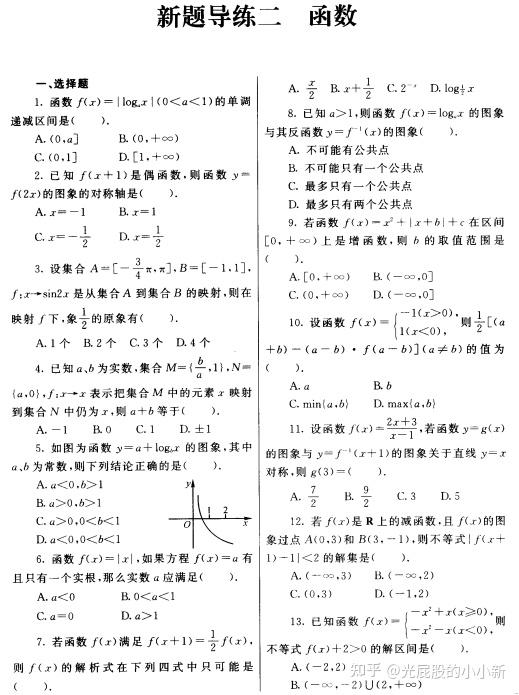 新题导练二 函数
一、选择题
1. 函数 f(x)=|logₐx|(0<a<1)的单调
递减区间是( ).
A. (0,a] B. (0,+∞)
C. (0,1] D. [1,+∞)
2. 已知 f(x+1)是偶函数,则函数 y=
f(2x)的图象的对称轴是( ).
A. x=-1 B. x=1
C. x=-1/2 D. x=1/2
3. 设集合 A=[-3/4π,π],B=[-1,1],
f:x→sin2x 是从集合 A 到集合 B 的映射,则在
映射 f 下,象1/2的原象有( ).
A. 1 个 B. 2 个 C. 3 个 D. 4 个
4. 已知 a、b 为实数,集合 M={b/a,1},N=
{a,0},f:x→x 表示把集合 M 中的元素 x 映射
到集合 N 中仍为 x,则 a+b 等于( ).
A. -1 B. 0 C. 1 D. ±1
5. 如图为函数 y=a+log_b x 的图象,其中
a、b 为常数,则下列结论正确的是( ).
A. a<0,b>1
B. a>0,b>1
C. a>0,0<b<1
D. a<0,0<b<1
y
1 2
O x
6. 函数 f(x)=|x|,如果方程 f(x)=a 有
且只有一个实根,那么实数 a 应满足( ).
A. a<0 B. 0<a<1
C. a=0 D. a>1
7. 若函数 f(x)满足 f(x+1)=1/2 f(x),
则 f(x)的解析式在下列四式中只可能是
( ).
A. x/2 B. x+1/2 C. 2⁻ˣ D. log_{1/2} x
8. 已知 a>1,则函数 f(x)=logₐx 的图象
与其反函数 y=f⁻¹(x)的图象( ).
A. 不可能有公共点
B. 不可能只有一个公共点
C. 最多只有一个公共点
D. 最多只有两个公共点
9. 若函数 f(x)=x²+|x+b|+c 在区间
[0,+∞)上是增函数,则 b 的取值范围是
( ).
A. [0,+∞) B. (-∞,0]
C. (0,+∞) D. (-∞,0]
10. 设函数 f(x)={-1(x>0), 1(x<0), 则1/2[(a
+b)-(a-b)·f(a-b)](a≠b)的值为
( ).
A. a B. b
C. min{a,b} D. max{a,b}
11. 设函数 f(x)=(2x+3)/(x-1),若函数 y=g(x)
的图象与 y=f⁻¹(x+1)的图象关于直线 y=x
对称,则 g(3)=( ).
A. 7/2 B. 9/2 C. 3 D. 5
12. 若 f(x)是 R 上的减函数,且 f(x)的图
象过点 A(0,3)和 B(3,-1),则不等式|f(x+
1)-1|<2 的解集是( ).
A. (-∞,3) B. (-∞,2)
C. (0,3) D. (-1,2)
13. 已知函数 f(x)={-x²+x(x≥0), -x²-x(x<0), 则
不等式 f(x)+2>0 的解区间是( ).
A. (-2,2)
B. (-∞,-2)∪(2,+∞)
知乎 @光屁股的小小新